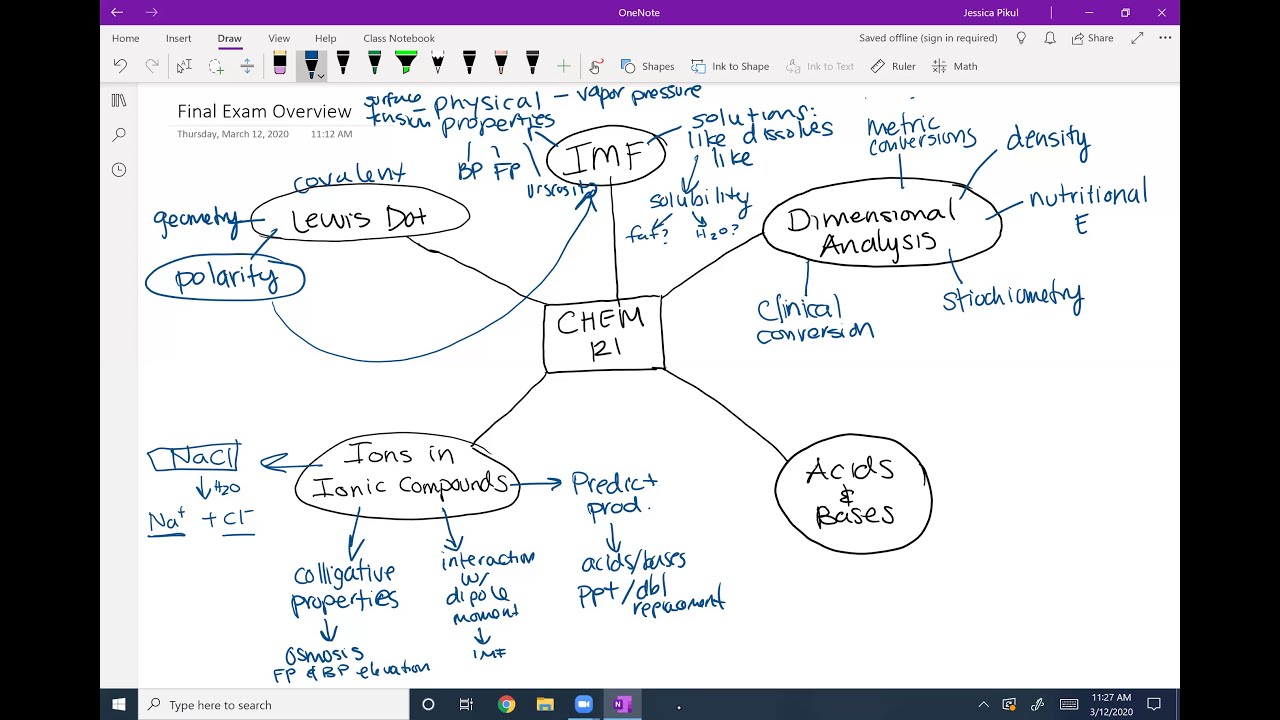 OneNote
Jessica Pikul
Home Insert Draw View Help Class Notebook
Saved offline (sign in required)
Share
Shapes
Ink to Shape
Ink to Text
Ruler
Math
Final Exam Overview
Thursday, March 12, 2020 11:12 AM
surface
tension
– physical – vapor pressure
properties
BP FP viscosity
IMF
solutions:
like dissolves
like
solubility
fat? H2O?
covalent
Lewis Dot
geometry
polarity
metric
conversions
density
nutritional
E
Dimensional
Analysis
Clinical
conversion
Stiochiometry
CHEM
121
NaCl
↓ H2O
Na+ + Cl-
Ions in
Ionic Compounds
Predict
prod.
acids/bases
ppt/dbl
replacement
colligative
properties
osmosis
FP & BP elevation
interaction
w/
dipole
moment
IMF
Acids
&
Bases
Type here to search
11:27 AM
3/12/2020